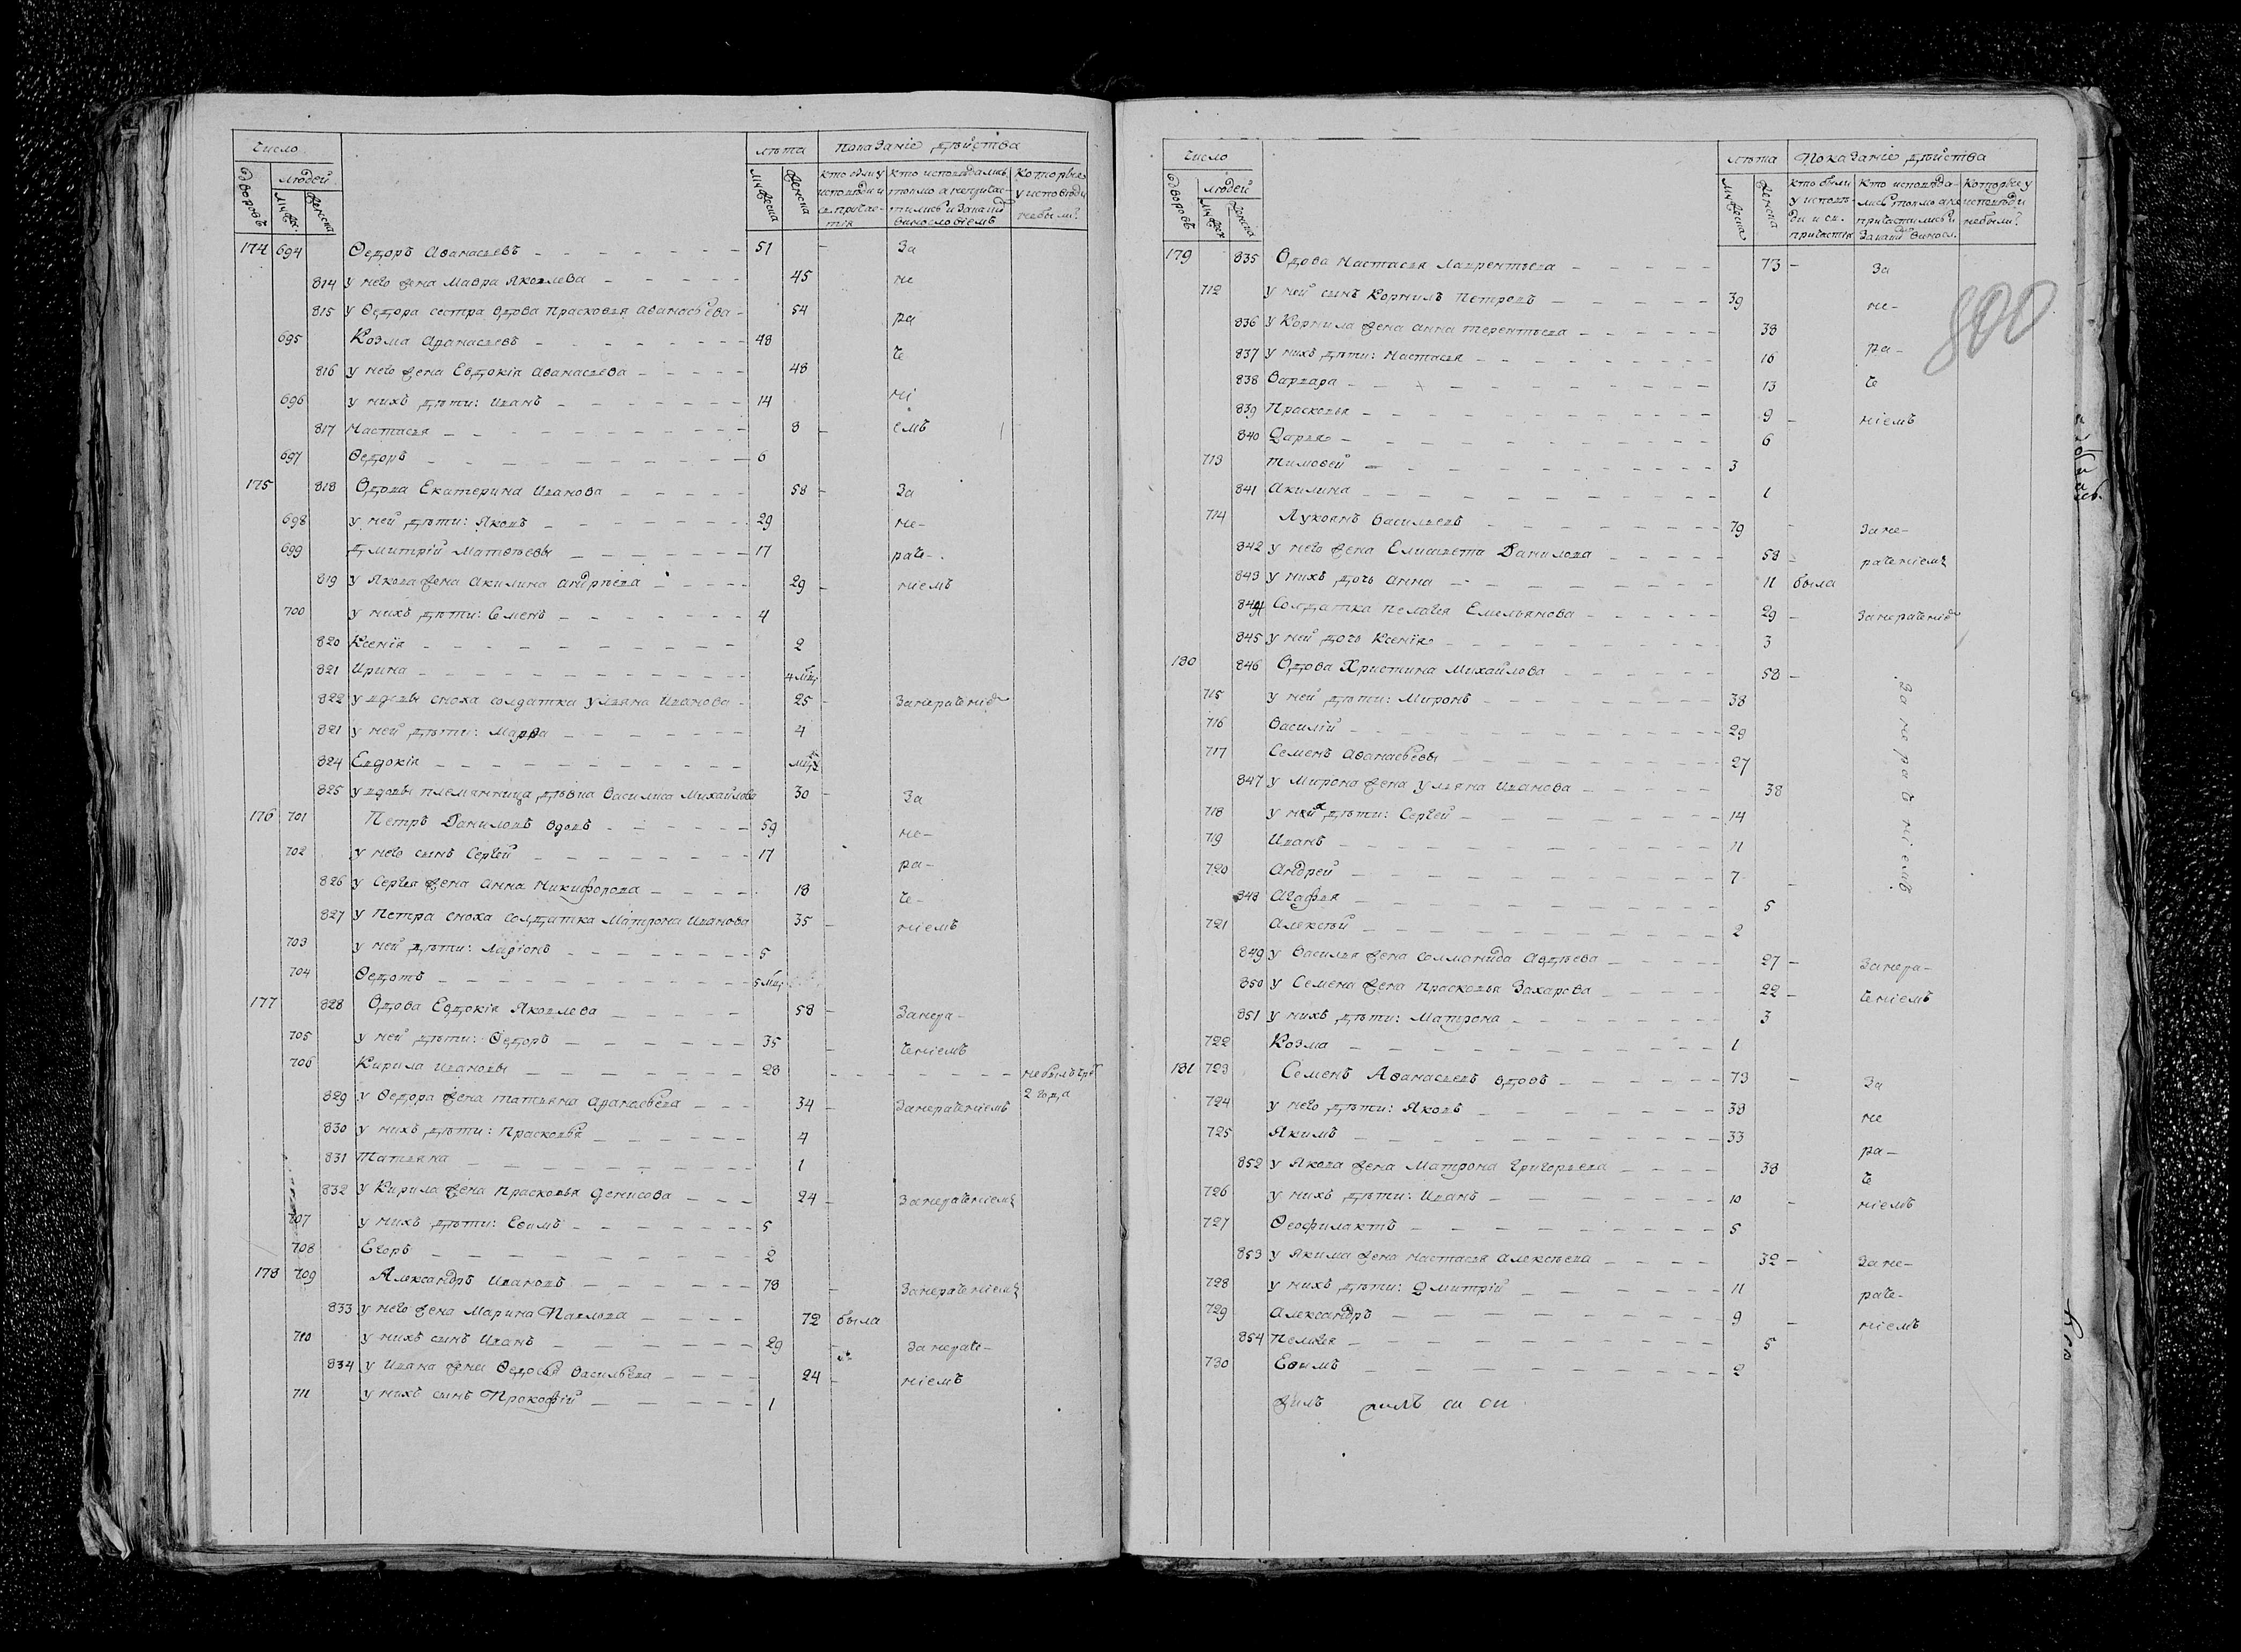 Число
лѣта
Показаніе дѣйства
дворовъ
людей
муж.
женска
мужеска
женска
кто были у исповѣди и св. причастія
кто исповѣдались токмо а не причастились и за какимъ винословіемъ
Которые у исповѣди небыли?
174 694 Ѳедоръ Аѳанасьевъ 51 За
814 у него жена Мавра Яковлева 45 не
815 у Ѳедора сестра вдова Прасковья Аѳанасьева 54 ра
695 Козма Аѳанасьевъ 48 че
816 у него жена Евдокія Аѳанасьева 48
696 у нихъ дѣти: Иванъ 14 ні
817 Настасья 8 емъ
697 Ѳедоръ 6
175 818 Вдова Екатерина Иванова 58 За
698 у ней дѣти: Яковъ 29 не-
699 Дмитрій Матвѣевы 17 раче-
819 у Якова жена Акилина Андрѣева 29 ніемъ
700 у нихъ дѣти: Семенъ 4
820 Ксенія 2
821 Ирина 4 мц.
822 у вдовы сноха солдатка Ульяна Иванова 25 Занераченіе
821 у ней дѣти: Марѳа 4
824 Евдокія
825 у вдовы племянница дѣвка Василиса Михайлова 30 За
176 701 Петръ Даниловъ вдовъ 59 не-
702 у него сынъ Сергей 17 ра-
826 у Сергея жена Анна Никифорова 18 че-
827 у Петра сноха солдатка Матрона Иванова 35 ніемъ
703 у ней дѣти: Ларіонъ 5
704 Ѳедотъ 5 мц.
177 828 Вдова Евдокія Яковлева 58 Занера-
705 у ней дѣти: Ѳедоръ 35 ченіемъ
706 Кирила Ивановы 28 небылъ
2 года
829 у Ѳедора жена Татьяна Аѳанасьева 34 Занераченіемъ
830 у нихъ дѣти: Прасковья 4
831 Татьяна 1
832 у Кирила жена Прасковья Денисова 24 Занераченіемъ
707 у нихъ дѣти: Еѳимъ 5
708 Егоръ 2
178 709 Александръ Ивановъ 78 Занераченіемъ
833 у него жена Марина Павлова 72 была
710 у нихъ сынъ Иванъ 29 Занераче-
834 у Ивана жена Ѳедосья Васильева 24 ніемъ
711 у нихъ сынъ Прокофій 1
Число
лѣта
Показаніе дѣйства
дворовъ
людей
муж.
женска
мужеска
женска
кто были у исповѣди и св. причастія
кто исповѣдались токмо а не причастились и за какимъ виносл.
Которые у исповѣди небыли?
800
179 835 Вдова Настасья Лаврентьева 73 За
712 у ней сынъ Корнилъ Петровъ 39 не-
836 у Корнила жена Анна Терентьева 38
837 у нихъ дѣти: Настасья 16 ра-
838 Варвара 13 че
839 Прасковья 9 ніемъ
840 Дарья 6
713 Тимоѳей 3
841 Акилина 1
714 Лукоянъ Васильевъ 79 Зане-
842 у него жена Елисавета Данилова 58 раченіемъ
843 у нихъ дочь Анна 11 была
844 Солдатка Пелагея Емельянова 29 Занераченіе
845 у ней дочь Ксенія 3
180 846 Вдова Христина Михайлова 58
715 у ней дѣти: Миронъ 38
716 Василій 29
717 Семенъ Аѳанасьевы 27
847 у Мирона жена Ульяна Иванова 38
718 у нихъ дѣти: Сергей 14
719 Иванъ 11
720 Андрей 7
848 Агафья 5
721 Алексѣй 2
Занераченіемъ
849 у Василья жена Соломонида Авдѣева 27 Занера-
850 у Семена жена Прасковья Захарова 22 ченіемъ
851 у нихъ дѣти: Матрона 3
722 Козма 1
181 723 Семенъ Аѳанасьевъ вдовъ 73 За
724 у него дѣти: Яковъ 38 не
725 Якимъ 33 ра-
852 у Якова жена Матрона Григорьева 38 че
726 у нихъ дѣти: Иванъ 10 ніемъ
727 Ѳеофилактъ 5
853 у Якима жена Настасья Алексѣева 32 Зане-
728 у нихъ дѣти: Дмитрій 11 раче-
729 Александръ 9 ніемъ
854 Пелагея 5
730 Еѳимъ 2